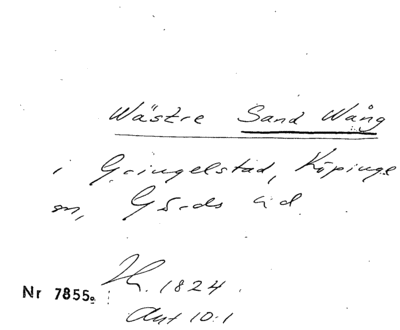 Wästre Sand Wång
i Gringelstad, Köpinge
m, Gärds hd.
Nr 7855a 1824.
Akt 10:1